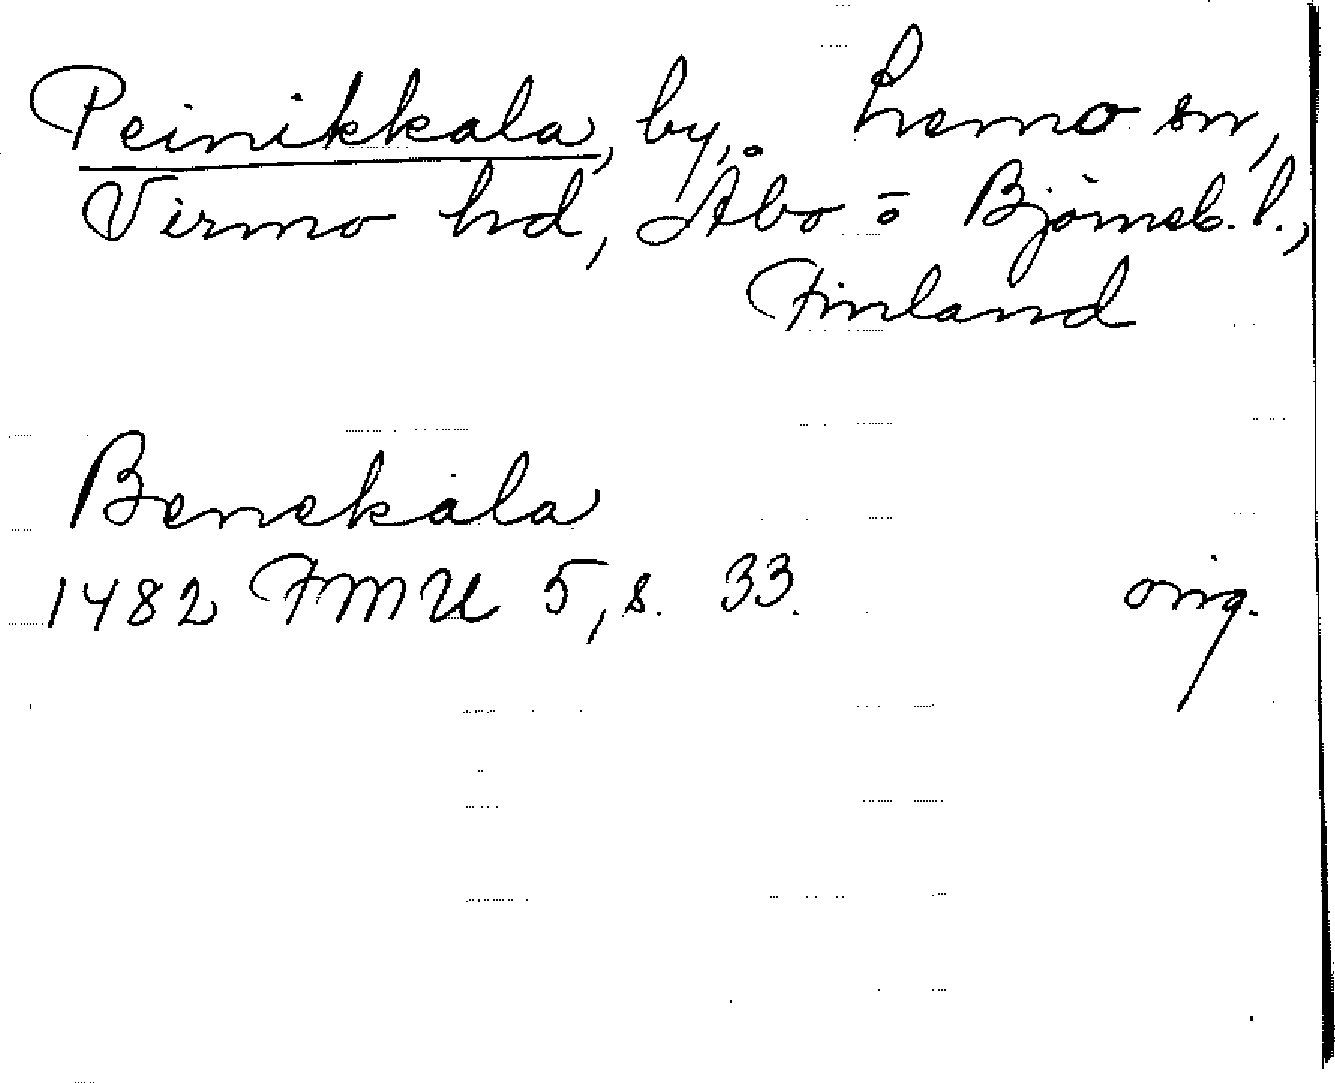 Peinikkala, by, Lemo sn,
Virmo hd, Åbo o Björneb. l.,
Finland
Benekala
1482 FMU 5, s. 33. orig.